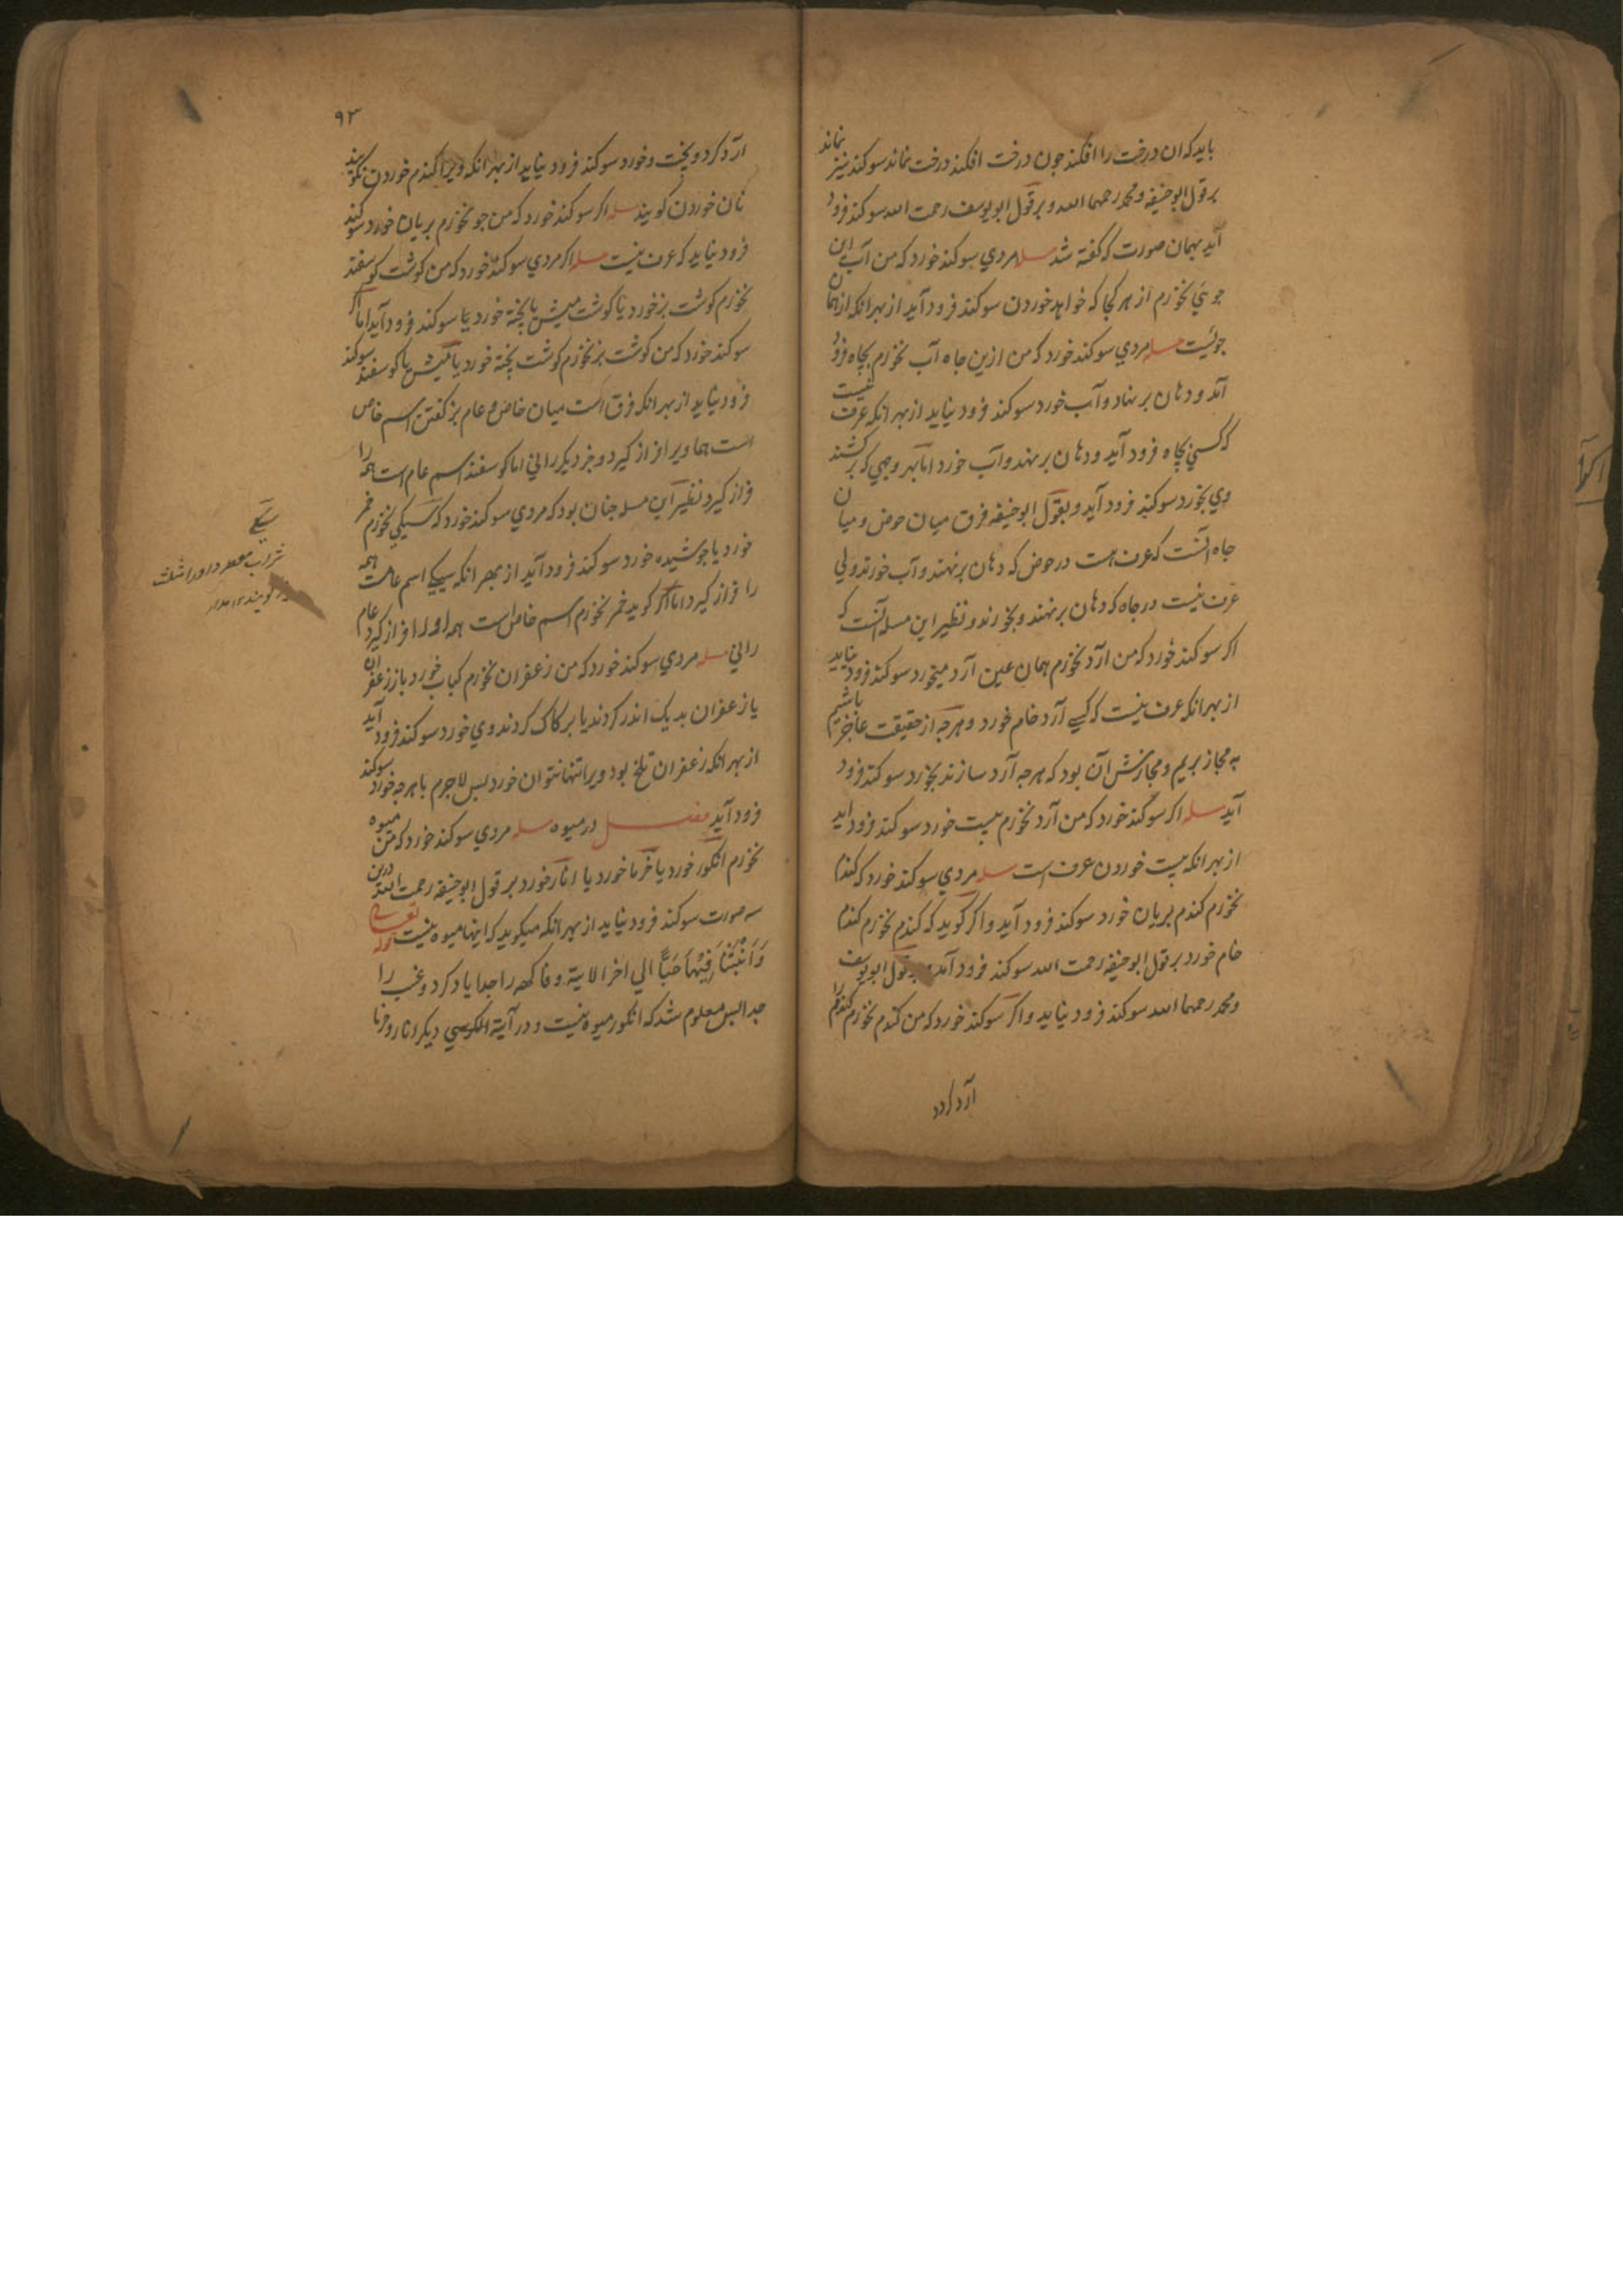 بايد که ان درخت را افکند جون درخت افکند درخت نماند سوکند نيز نماند
بر قول ابو حنيفه و محمد رحمهما الله و بر قول ابو يوسف رحمت الله سوکند فرود
آيد بهمان صورت که کفته شد مسله مردي سوکند خورد که من آب اين
جوئي نخورم از هر کجا که خواهد خوردن سوکند فرود آيد از بهر انکه از همان
جوئيست مسله مردي سوکند خورد که من ازين جاه آب نخورم بجاه فرود
آمد و دهان بر نهاد و آب خورد سوکند فرود نيايد از بهر انکه عرف نيست
که کسي بجاه فرود آيد و دهان بر نهد و آب خورد اما بهر وجهي که بر کشند
وي بخورد سوکند فرود آيد و بقول ابو حنيفه فرق ميان حوض و ميان
جاه آنست که عرف هست در حوض که دهان بر نهند و آب خورند ولي
عرف نيست در جاه که دهان بر نهند و بخورند و نظير اين مسله آنست که
اکر سوکند خورد که من آرد نخورم همان عين آرد ميخورد سوکند فرود نيايد
از بهر انکه عرف نيست که کسي آرد خام خورد و هرجه از حقيقت عاجز باشيم
به مجاز بريم و مجازش آن بود که هرجه آرد سازند بخورد سوکند فرود
آيد مسله اکر سوکند خورد که من آرد نخورم بست خورد سوکند فرود ايد
از بهر انکه بست خوردن عرف است مسله مردي سوکند خورد که کندم
نخورم کندم بريان خورد سوکند فرود آيد و اکر کويد که کندم نخورم کندم
خام خورد بر قول ابو حنيفه رحمت الله سوکند فرود آمد و بر قول ابو يوسف
و محمد رحمهما الله سوکند فرود نيايد و اکر سوکند خورد که من کندم نخورم کندم را
آرد کرد
۹۳
آرد کرد و پخت و خورد سوکند فرود نيايد از بهر انکه ويرا کندم خوردن نکويند
نان خوردن کويند مسله اکر سوکند خورد که من جو نخورم بريان خورد سوکند
فرود نيايد که عرف نيست مسله اکر مردي سوکند خورد که من کوشت کوسفند
نخورم کوشت بز خورد يا کوشت ميش يا پخته خورد يا سوکند فرود آيد اما اکر
سوکند خورد که من کوشت بز نخورم کوشت پخته خورد يا ميش يا کوسفند سوکند
فرود نيايد از بهر انکه فرق است ميان خاص و عام بز کفتن اسم خاص
است هما ويرا فراز کيرد و جز ديکر راني اما کوسفند اسم عام است همه را
فراز کيرد نظير اين مسله جنان بود که مردي سوکند خورد که سيکي نخورم خمر
خورد يا جوشيده خورد سوکند فرود آيد از بهر انکه سيکي اسم عامست همه
را فراز کيرد اما اکر کويد خمر نخورم اسم خاص است همه او را فراز کيرد عام
راني مسله مردي سوکند خورد که من زعفران نخورم کباب خورد با زعفران
يا زعفران بديک اندر کردند يا بر کاک کردند وي خورد سوکند فرود آيد
از بهر انکه زعفران تلخ بود ويرا تنها نتوان خورد بس لاجرم با هرجه خورد سوکند
فرود آيد فصل در ميوه مسله مردي سوکند خورد که من ميوه
نخورم انکور خورد يا خرما خورد يا انار خورد بر قول ابو حنيفه رحمت الله درين
سه صورت سوکند فرود نيايد از بهر انکه ميکويد که اينها ميوه نيست قوله تعالي
وَاَنْبَتْنَا فِيْهَا حَبًّا الي اخر الاية و فاکهه را جدا ياد کرد و عنب را
جدا بس معلوم شد که انکور ميوه نيست و در آية الکرسي ديکر انار و خرما
سيکي
شراب
کويند